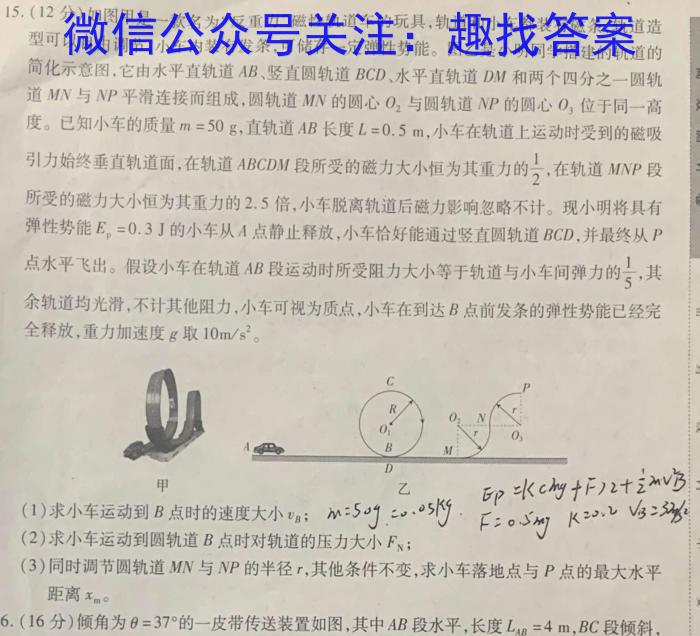 15.(12分)如图甲是一款名为"反重力
微信公众号关注：趣找答案
简化示意图,它由水平直轨道 AB、竖直圆轨道 BCD、水平直轨道 DM 和两个四分之一圆轨
道 MN 与 NP 平滑连接而组成,圆轨道 MN 的圆心 O₂ 与圆轨道 NP 的圆心 O₃ 位于同一高
度。已知小车的质量 m=50 g,直轨道 AB 长度 L=0.5 m,小车在轨道上运动时受到的磁吸
引力始终垂直轨道面,在轨道 ABCDM 段所受的磁力大小恒为其重力的1/2,在轨道 MNP 段
所受的磁力大小恒为其重力的 2.5 倍,小车脱离轨道后磁力影响忽略不计。现小明将具有
弹性势能 Eₚ=0.3 J 的小车从 A 点静止释放,小车恰好能通过竖直圆轨道 BCD,并最终从 P
点水平飞出。假设小车在轨道 AB 段运动时所受阻力大小等于轨道与小车间弹力的1/5,其
余轨道均光滑,不计其他阻力,小车可视为质点,小车在到达 B 点前发条的弹性势能已经完
全释放,重力加速度 g 取 10m/s²。
C
R
O₁
B
D
A
O₂
N
P
r
r
O₃
M
甲
乙
Ep=K(mg+F)L+½mv²B
(1)求小车运动到 B 点时的速度大小 v_B；
m=50g=0.05kg
F=0.5mg K=0.2
(2)求小车运动到圆轨道 B 点时对轨道的压力大小 F_N；
(3)同时调节圆轨道 MN 与 NP 的半径 r,其他条件不变,求小车落地点与 P 点的最大水平
距离 xₘ。
6.(16分)倾角为 θ=37°的一皮带传送装置如图,其中 AB 段水平,长度 L_AB=4 m,BC 段倾斜,